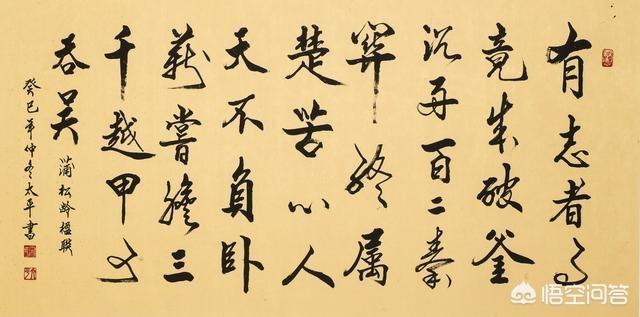 有志者事
竟成破釜
沉舟百二秦
關終属
楚苦心人
天不負卧
薪嘗膽三
千越甲可
吞吴
蒲松龄楹联
癸巳年仲冬太平書
悟空问答